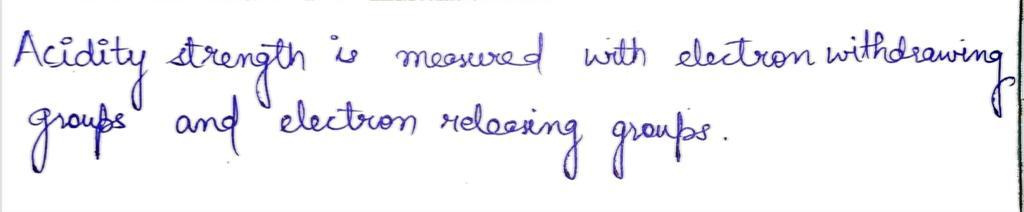 Acidity strength is measured with electron withdrawing
groups and electron releasing groups.